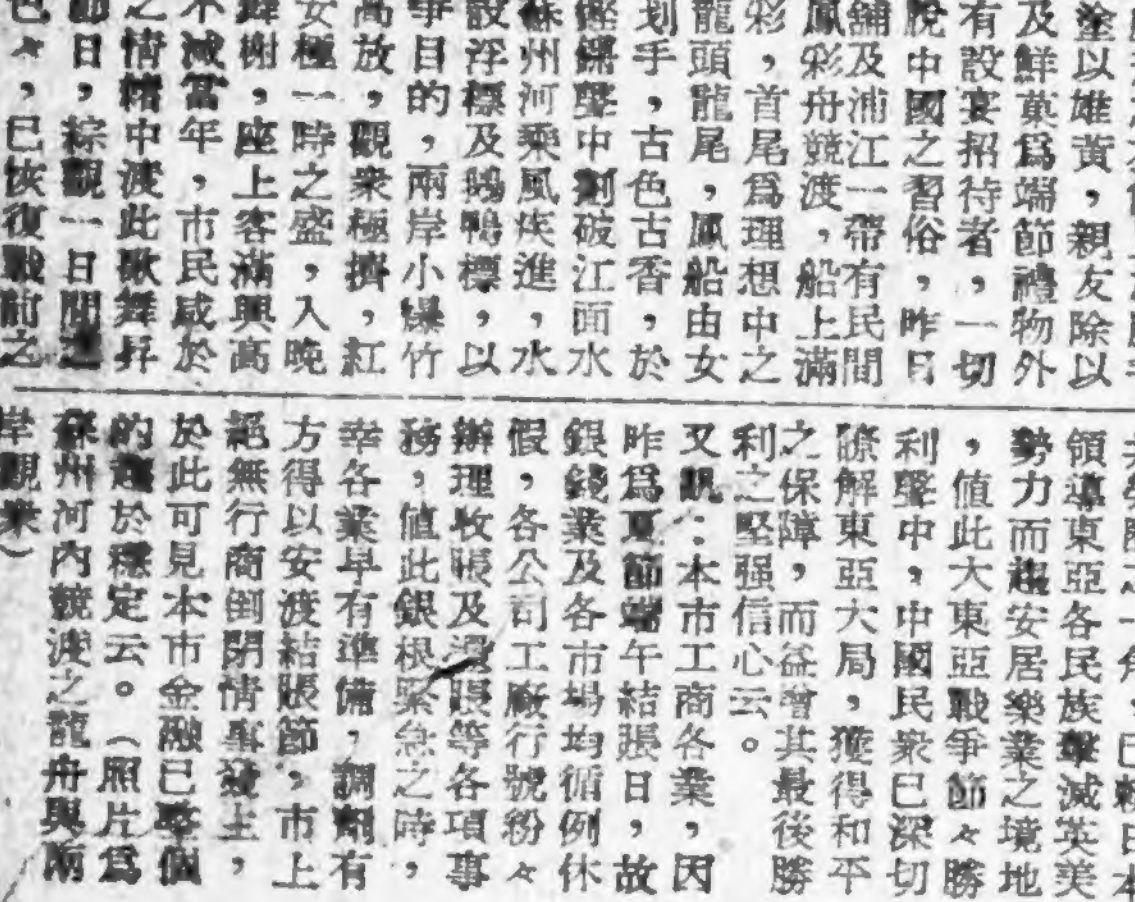 塗以雄黃，親友除以
及鮮菓爲端節禮物外
有設宴招待者，一切
脫中國之習俗，昨日
舖及浦江一帶有民間
鳳彩舟競渡，船上滿
彩，首尾爲理想中之
龍頭龍尾，鳳船由女
划手，古色古香，於
鏗鏘聲中劃破江面水
蘇州河乘風疾進，水
設浮標及鴨標，以
爭目的，兩岸小爆竹
高放，觀衆極擠，紅
安極一時之盛，入晚
舞榭，座上客滿興高
不減當年，市民咸於
之情緒中渡此歌舞昇
節日，綜觀一日間
色々，已恢復戰前之
已賴日本
領導東亞各民族擊滅英美
勢力而趨安居樂業之境地
，值此大東亞戰爭節々勝
利聲中，中國民衆已深切
諒解東亞大局，獲得和平
之保障，而益增其最後勝
利之堅强信心云。
又訊：本市工商各業，因
昨爲夏節端午結賬日，故
銀錢業及各市場均循例休
假，各公司工廠行號粉々
辦理收賬及還賬等各項事
務，值此銀根緊急之時，
幸各業早有準備，調劑有
方得以安渡結賬節，市上
絕無行商倒閉情事發生，
於此可見本市金融已整個
的趨於穩定云。（照片爲
蘇州河內競渡之龍舟與兩
岸觀衆）